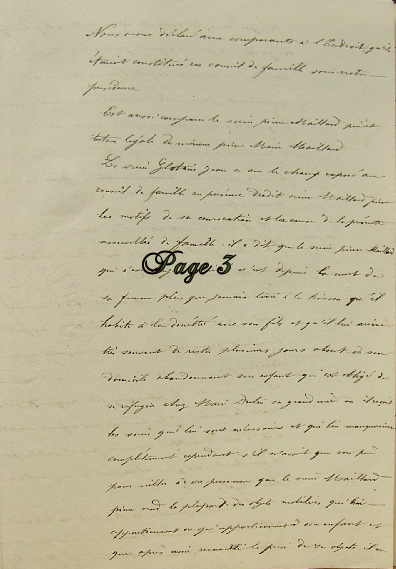 Nous avons déclaré aux comparants à l'endroit qu'ils
étaient constitués en conseil de famille sous notre
présidence
Est aussi comparu le sieur pierre Maillard père et
tuteur légale du mineur pierre Marie Maillard
Le sieur Jean a sur le champ exposé au
conseil de famille en présence dudit sieur Maillard père
les motifs de sa convocation et la cause de la présente
assemblée de famille il a dit que le sieur pierre Maillard
qui s'est Page 3 et est depuis la mort de
sa femme plus que jamais livré à la boisson qu'il
habite à la avec son fils et qu'il lui arrive
très souvent de rester plusieurs jours absent de son
domicile abandonnant son enfant qui est obligé de
se réfugier chez Marie sa grand mère où il reçoit
les soins qui lui sont nécessaires et qui lui manqueraient
complètement cependant s'il n'avait que son père
pour veiller à sa personne que le sieur Maillard
pierre vend la plupart des objets mobiliers qui lui
appartiennent ou qui appartiennent à son enfant et
que après avoir le prix de ces objets il